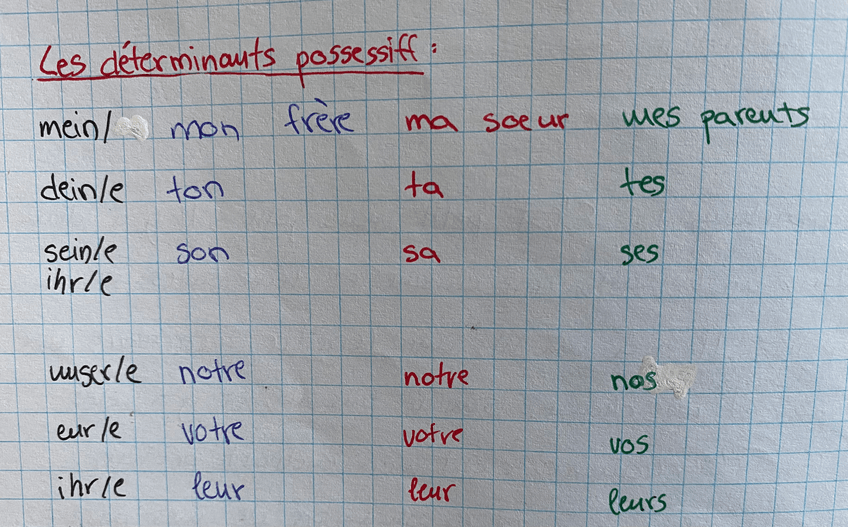 Les déterminants possessiff:
mein/ mon frère ma soeur mes parents
dein/e ton ta tes
sein/e son sa ses
ihr/e
unser/e notre notre nos
eur/e votre votre vos
ihr/e leur leur leurs